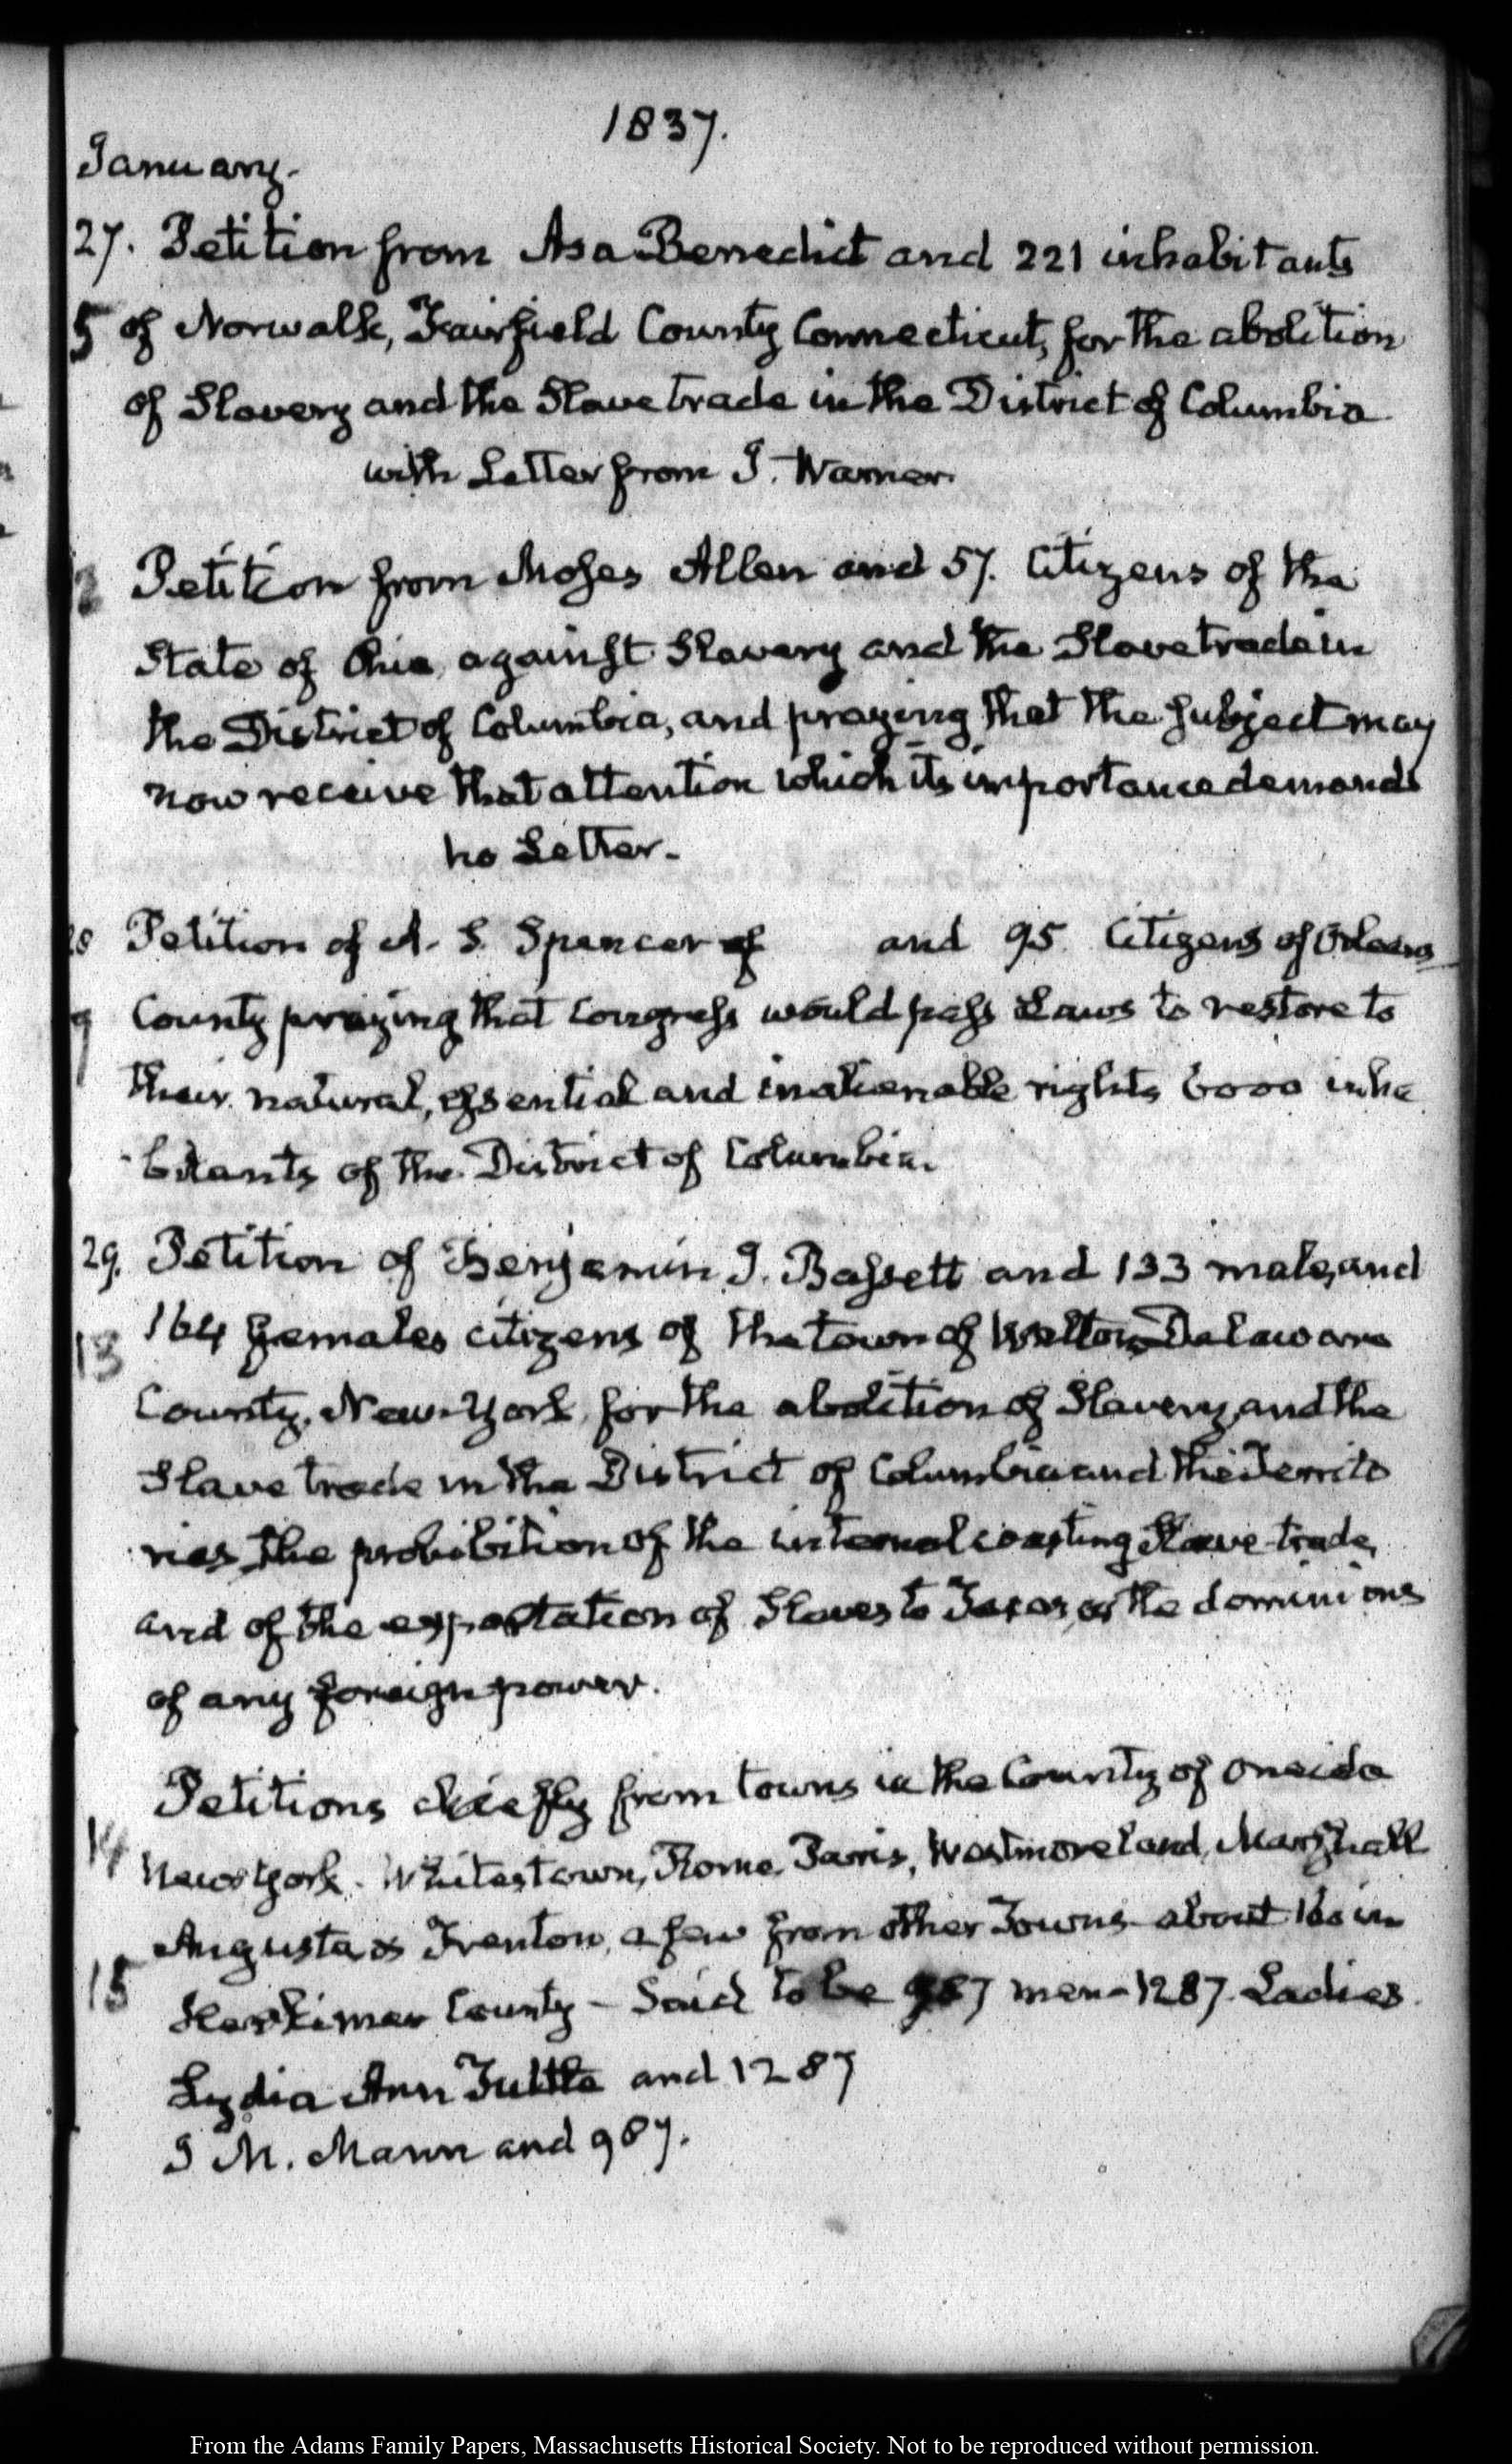 1837.
January.
27. Petition from Asa Benedict and 221 inhabitants
5 of Norwalk, Fairfield County Connecticut, for the abolition
of Slavery and the Slave trade in the District of Columbia
with Letter from J. Warner.
Petition from Moses Allen and 57. Citizens of the
State of Ohio, against Slavery and the Slave trade in
the District of Columbia, and praying that the subject may
now receive that attention which its importance demands
no Letter.
28 Petition of A. S. Spencer of and 95 Citizens of Orleans
9 County praying that Congress would pass Laws to restore to
their natural, essential and inalienable rights 6000 inha
bitants of the District of Columbia.
29. Petition of Benjamin J. Bassett and 133 males, and
13 164 females citizens of the town of Walton Delaware
County, New-York, for the abolition of Slavery, and the
Slave trade in the District of Columbia and the Territo
ries, the prohibition of the internal coasting Slave-trade,
and of the exportation of Slaves to Texas, or the dominions
of any foreign power.
Petitions chiefly from towns in the County of Oneida
14 New York. Whitestown, Rome, Paris, Westmoreland, Marshall
Augusta & Trenton, a few from other Towns about 160 in
15 Herkimer County – Said to be 987 men – 1287. Ladies.
Lydia Ann Tuttle and 1287
J M. Mann and 987.
From the Adams Family Papers, Massachusetts Historical Society. Not to be reproduced without permission.